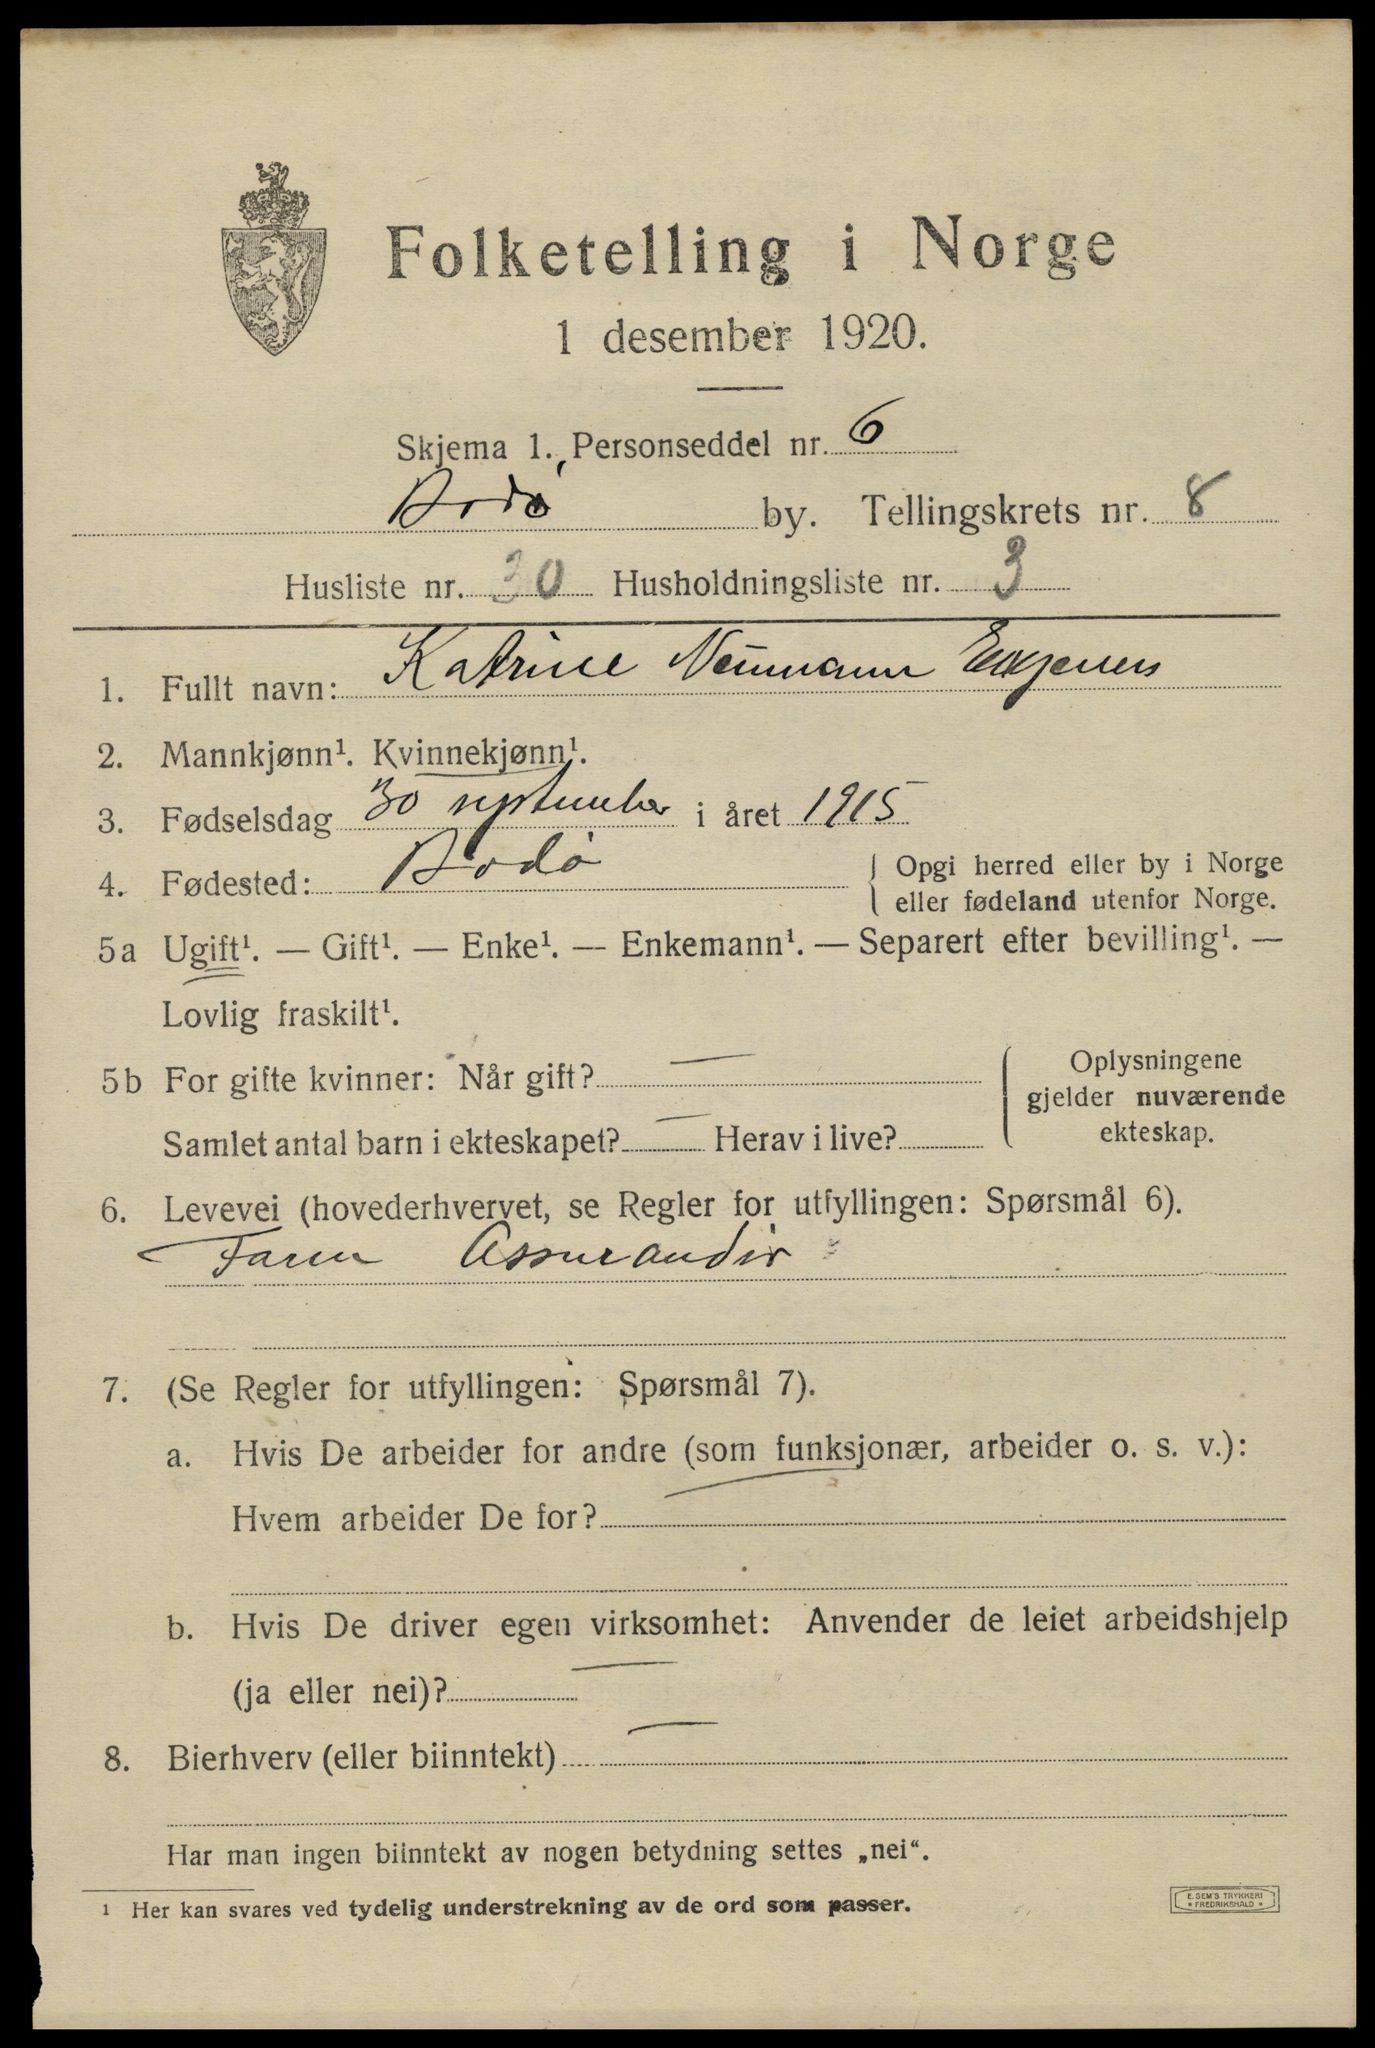 Folketelling i Norge
1 desember 1920.
Skjema 1. Personseddel nr. 6
Bodø by. Tellingskrets nr. 8
Husliste nr. 30 Husholdningsliste nr. 3
1. Fullt navn: Katrine Neumann
2. Mannkjønn¹. Kvinnekjønn¹.
3. Fødselsdag 30 september i året 1915
4. Fødested: Bodø
Opgi herred eller by i Norge
eller fødeland utenfor Norge.
5a Ugift¹. — Gift¹. — Enke¹. — Enkemann¹. — Separert efter bevilling¹. —
Lovlig fraskilt¹.
5b For gifte kvinner: Når gift? —
Samlet antal barn i ekteskapet? — Herav i live?
Oplysningene
gjelder nuværende
ekteskap.
6. Levevei (hovederhvervet, se Regler for utfyllingen: Spørsmål 6).
Farm Assurandør
7. (Se Regler for utfyllingen: Spørsmål 7).
a. Hvis De arbeider for andre (som funksjonær, arbeider o. s. v.):
Hvem arbeider De for? —
b. Hvis De driver egen virksomhet: Anvender de leiet arbeidshjelp
(ja eller nei)? —
8. Bierhverv (eller biinntekt) —
Har man ingen biinntekt av nogen betydning settes „nei“.
¹ Her kan svares ved tydelig understrekning av de ord som passer.
E. SEM'S TRYKKERI
* FREDRIKSHALD *